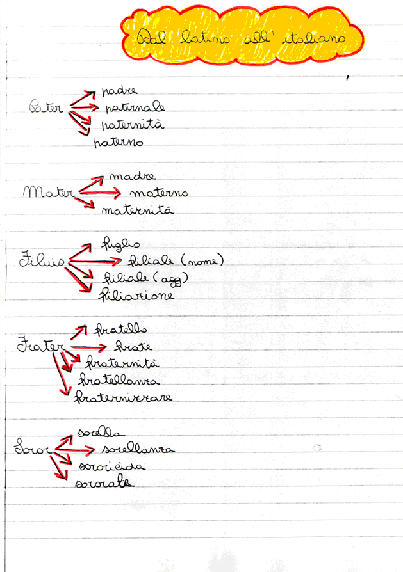 Dal latino all' italiano
Pater
padre
paternale
paternità
paterno
Mater
madre
materno
maternità
Filius
figlio
filiale (nome)
filiale (agg)
filiazione
Frater
fratello
frate
fraternità
fratellanza
fraternizzare
Soror
sorella
sorellanza
sororicida
sororale